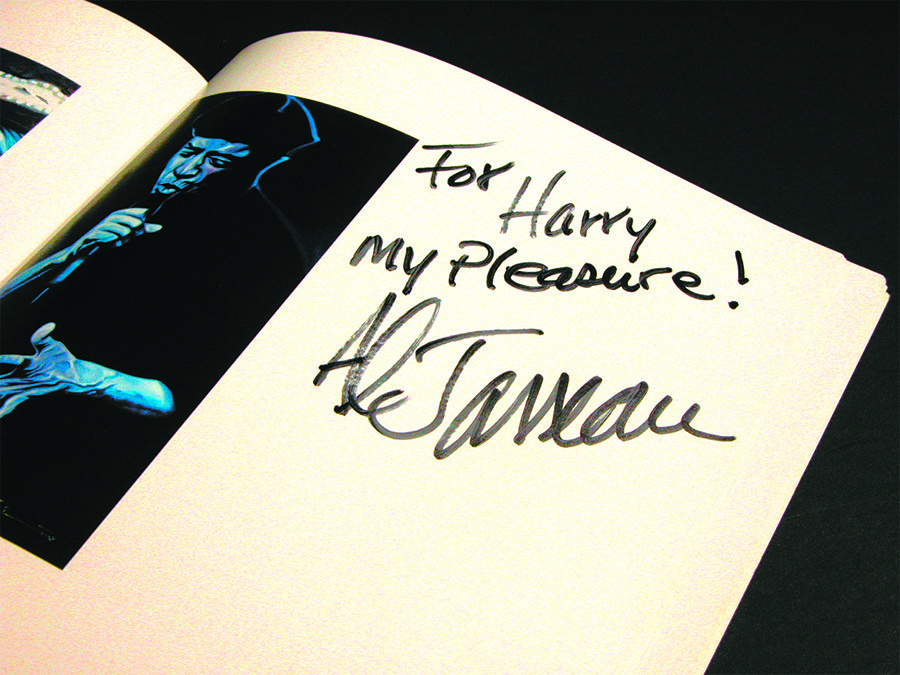 For
Harry
My Pleasure!
Al Jarreau